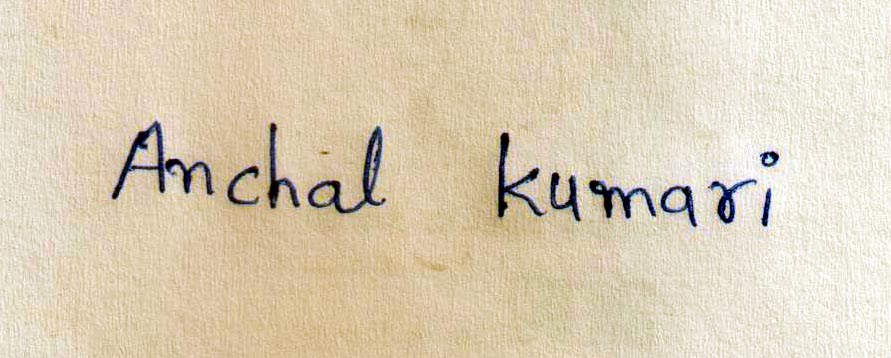 Anchal kumari